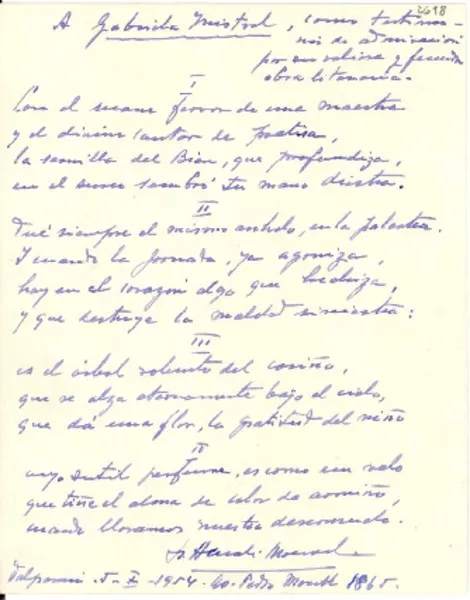 2698
A Gabriela Mistral, como testimo-
nio de admiración
por su valiosa y fecunda
obra literaria.
I
Con el suave fervor de una maestra
y el divino cantor de poetisa,
la semilla del Bien, que profundiza,
en el surco sembró tu mano diestra.
II
Fué siempre el mismo anhelo, en la palestra.
Y cuando la jornada, ya agoniza,
hay en el corazón algo que
y que destruye la maldad siniestra:
III
es el árbol robusto del cariño,
que se alza eternamente bajo el cielo,
que dá una flor, la gratitud del niño
IV
cuyo sutil perfume, es como un velo
que tiñe el alma de color de armiño,
cuando lloramos nuestro desconsuelo.
Valparaíso - 5 - X - 1954 - Av. Pedro Montt 1865.